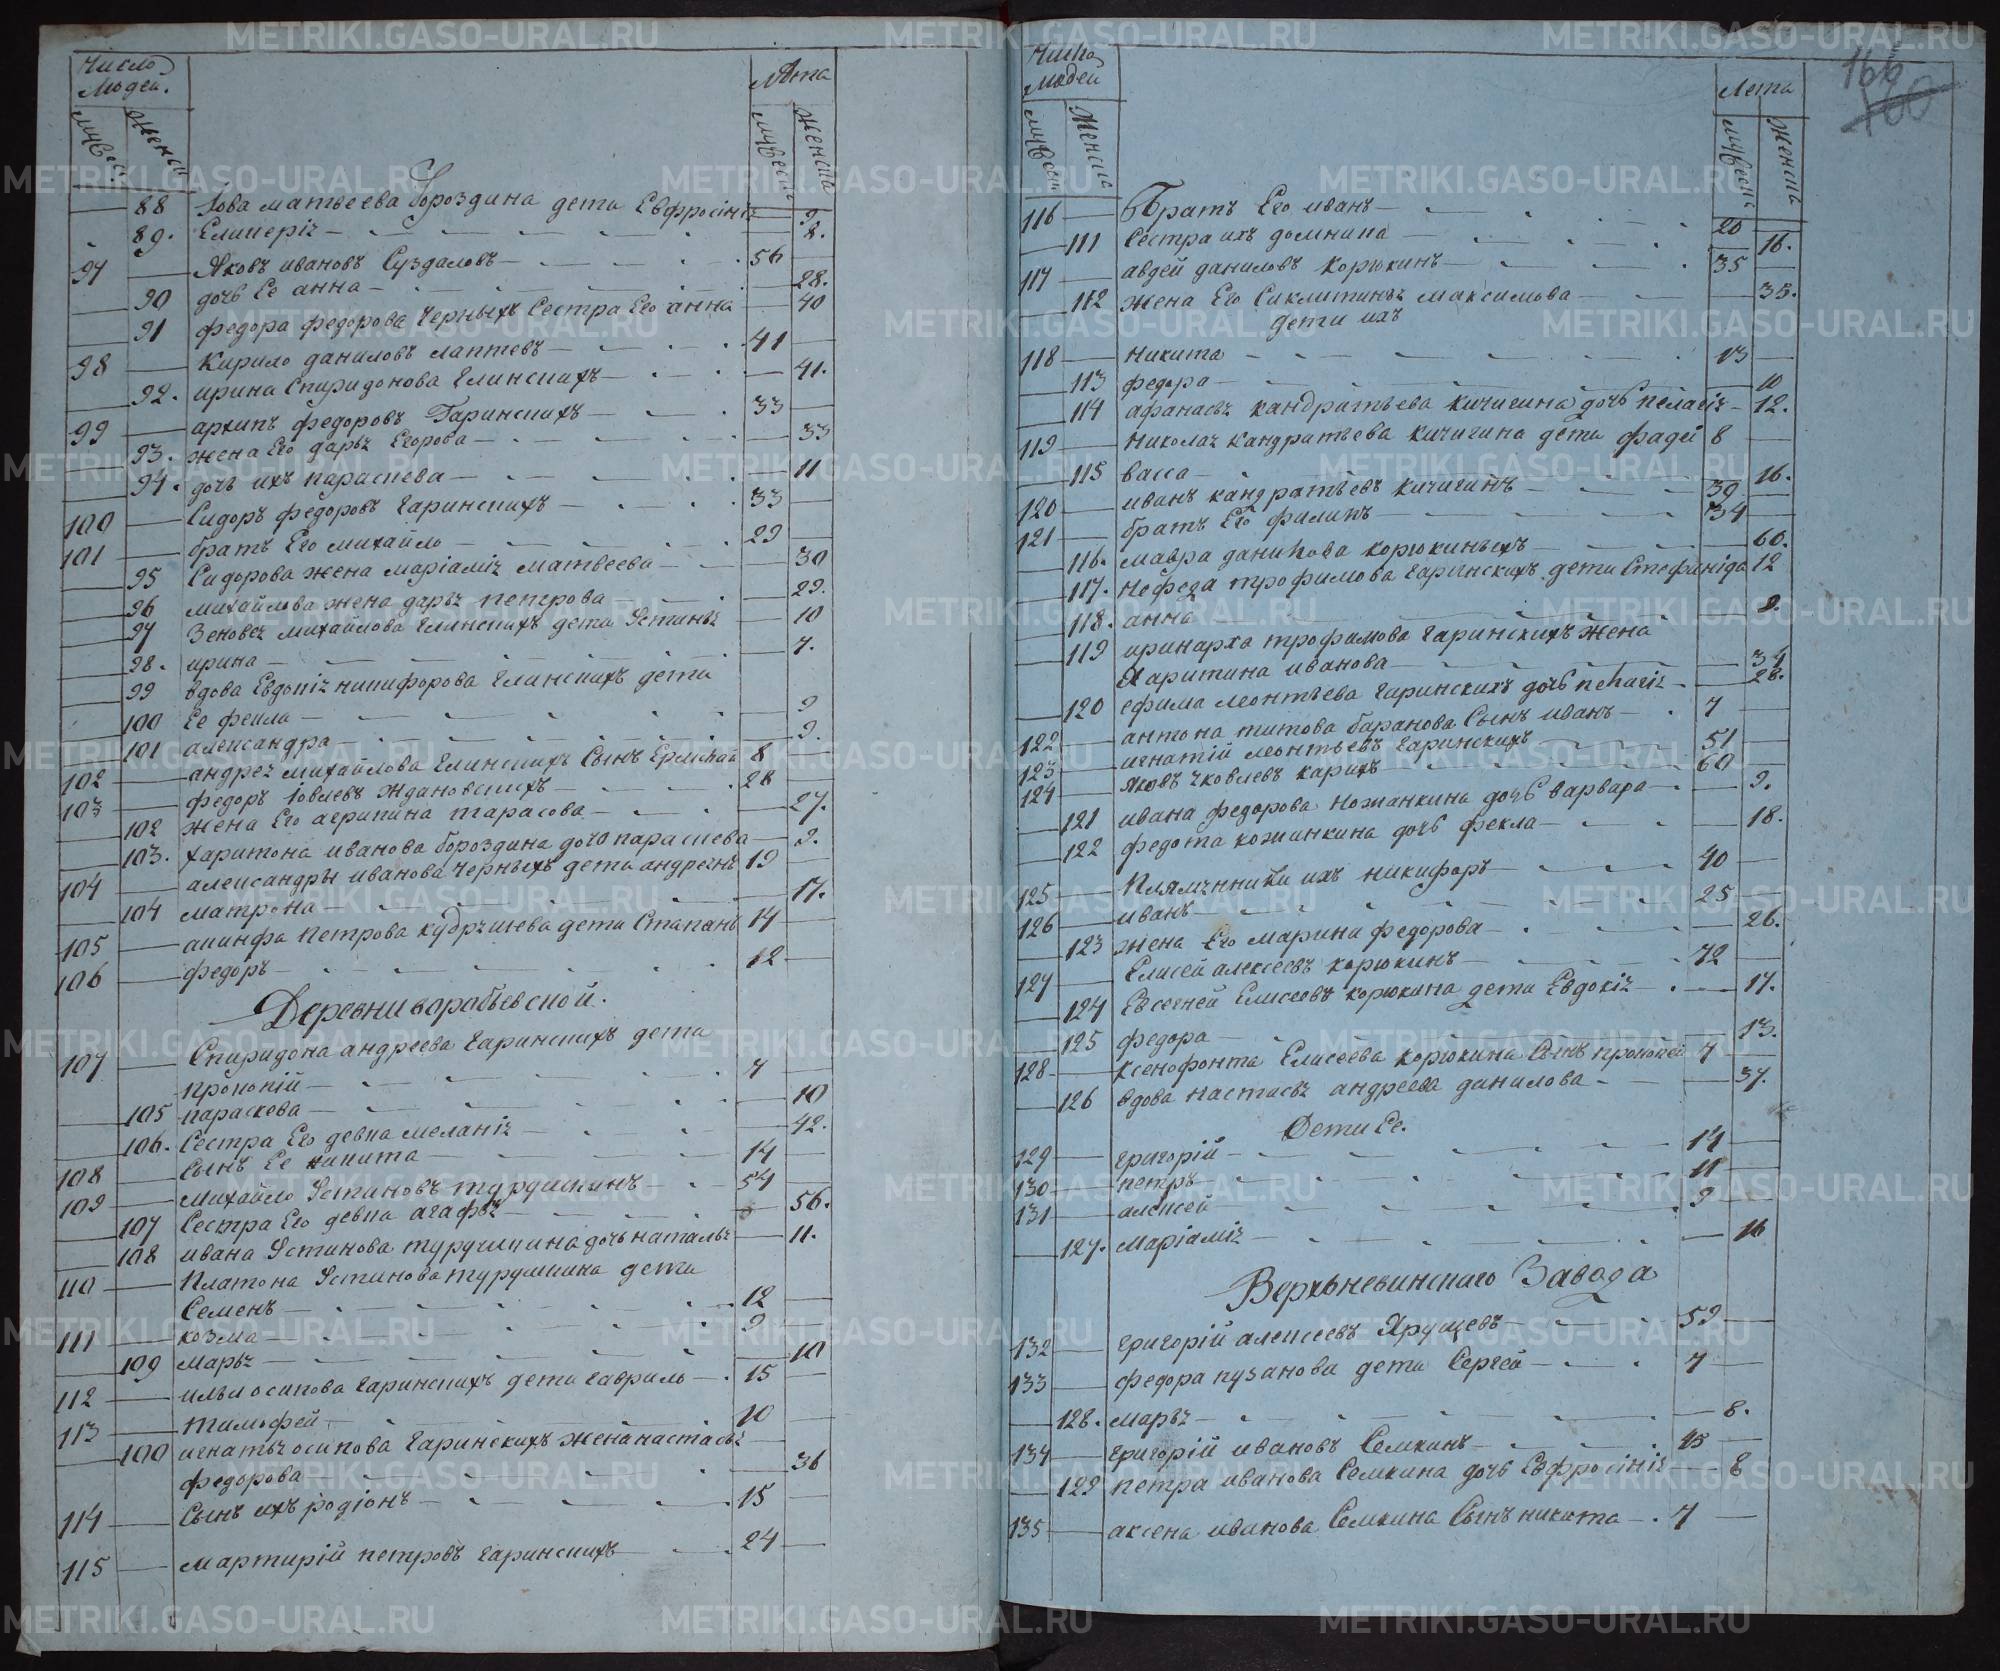 Число Людей. Лѣта
мужеск женск мужеск женска
88 Іова матвеева Бороздина дети Евфросінія 9.
89. Гликерія 2.
97 Яковъ ивановъ Суздаловъ 56
90 дочь Ее анна 28.
91 федора федорова Черныхъ Сестра Его анна 40
98 Кирило даниловъ лаптевъ 41
92. ирина Спиридонова Глинскихъ 41.
99 архипъ федоровъ Гаринскихъ 33
93. жена Его дарья Егорова 33
94. дочь ихъ параскева 11
100 Сидоръ федоровъ гаринскихъ 33
101 братъ Его михайло 29
95 Сидорова жена маріамія матвеева 30
96 михайлова жена дарья петрова 29.
97 Зеновея михайлова глинскихъ дети Устинья 10
98. ирина 7.
99 вдова Евдокія никифорова глинскихъ дети
100 Ее фекла 9
101 александра 9.
102 андрея михайлова глинскихъ Сынъ Ермолай 8
103 федоръ Іовлевъ ждановскихъ 28
102 жена Его агрипина тарасова 27.
103. харитона иванова бороздина дочь параскева 9.
104 александры иванова черныхъ дети андреянъ 19
104 матрона 17.
105 акинфа петрова кудряшева дети Стапанъ 14
106 федоръ 12
Деревни варабьевской.
107 Спиридона андреева гаринскихъ дети
прокопій 7
105 параскева 10
106. Сестра Его девка меланія 42.
108 Сынъ Ее никита 14
109 михайло Устиновъ турушкинъ 54
107 Сестра Его девка агафья 56.
108 ивана Устинова турушкина дочь наталья 11.
110 Платона Устинова турушкина дети
Семенъ 12
111 козма 9
109 марья 10
112 ильи осипова гаринскихъ дети гаврилъ 15
113 тимофей 10
100 игнатья осипова гаринскихъ жена настасья
федорова 36
114 Сынъ ихъ родіонъ 15
115 мартирій петровъ гаринскихъ 24
Число Людей Лета
мужеск Женска мужеск женскъ
166
160
116 Братъ Его иванъ 20
111 Сестра ихъ домнина 16.
117 авдей даниловъ корюкинъ 35
112 жена Его Сиклитинья максимова 35.
дети ихъ
118 никита 13
113 федора 10
114 афанасья кандратьева кичигина дочь пелагія 12.
119 николая кандратьева кичигина дети фадей 8
115 васса 16.
120 иванъ кандратьевъ кичигинъ 39
121 братъ Его филипъ 34
116. мавра данилова корюкиныхъ 60.
117. нефеда трофимова гаринскихъ дети Стефанида 12
118. анна 9.
119 иринарха трофимова гаринскихъ жена
Харитина иванова 34
120 ефима леонтьева гаринскихъ дочь пелагія 28.
122 антона титова баранова Сынъ иванъ 7
123 игнатій леонтьевъ гаринскихъ 51
124 яковъ яковлевъ карихъ 60
121 ивана федорова кожанкина дочь варвара 9.
122 федота кожанкина дочь фекла 18.
125 племянники ихъ никифоръ 40
126 иванъ 25
123 жена Его марина федорова 26.
127 Елисей алексеевъ корюкинъ 72
124 Евсегней Елисеевъ корюкина дети Евдокія 17.
125 федора 13.
128 ксенофонта Елисеева корюкина Сынъ прокопей 7
126 вдова настасья андреева данилова 37.
Дети Ее.
129 григорій 14
130 петръ 11
131 алексей 9
127. маріамія 16
Верхьневинскаго Завода
132 григорій алексеевъ Ярущевъ 59
133 федора пузанова дети Сергей 7
128. марья 8.
134 григорій ивановъ Семкинъ 45
129 петра иванова Семкина дочь Евфросінія 8
135 аксена иванова Семкина Сынъ никита 7